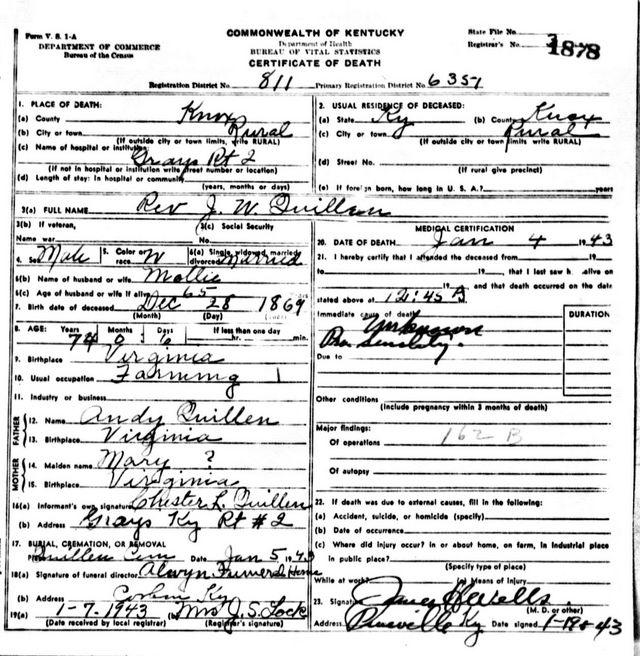 Form V. S. 1-A
DEPARTMENT OF COMMERCE
Bureau of the Census
COMMONWEALTH OF KENTUCKY
Department of Health
BUREAU OF VITAL STATISTICS
CERTIFICATE OF DEATH
State File No.
Registrar's No. 1878
Registration District No. 811 Primary Registration District No. 6351
1. PLACE OF DEATH:
(a) County Knox
(b) City or town Rural
(If outside city or town limits, write RURAL)
(c) Name of hospital or institution:
Grays Rt 2
(If not in hospital or institution write street number or location)
(d) Length of stay: In hospital or community
(years, months or days)
2. USUAL RESIDENCE OF DECEASED:
(a) State Ky (b) County Knox
(c) City or town Rural
(If outside city or town limits write RURAL)
(d) Street No.
(If rural give precinct)
(e) If foreign born, how long in U. S. A.? years
3(a) FULL NAME Rev J. W. Quillen
3(b) If veteran,
Name war
3(c) Social Security
No.
4. Sex Male 5. Color or race W 6(a) Single, widowed, married, divorced Married
6(b) Name of husband or wife Mollie
6(c) Age of husband or wife if alive 65
7. Birth date of deceased Dec 28 1869
(Month) (Day) (Year)
8. AGE: Years Months Days If less than one day
74 0 6 hr. min.
9. Birthplace Virginia
10. Usual occupation Farming
11. Industry or business
FATHER
12. Name Andy Quillen
13. Birthplace Virginia
MOTHER
14. Maiden name Mary ?
15. Birthplace Virginia
16(a) Informant's own signature Chester L. Quillen
(b) Address Grays Ky Rt # 2
17. BURIAL, CREMATION, OR REMOVAL
Quillen Cem Date Jan 5, 1943
18(a) Signature of funeral director Alwyn Funeral Home
(b) Address Corbin Ky
19(a) 1-7-1943 Mrs J. S. Lock
(Date received by local registrar) (Registrar's signature)
MEDICAL CERTIFICATION
20. DATE OF DEATH Jan 4 1943
21. I hereby certify that I attended the deceased from 19
to 19, that I last saw h alive on
19 and that death occurred on the date
stated above at 12:45 A
Immediate cause of death Unknown
Senility.
DURATION
Due to
Other conditions
(Include pregnancy within 3 months of death)
Major findings:
Of operations 162 B
Of autopsy
22. If death was due to external causes, fill in the following:
(a) Accident, suicide, or homicide (specify)
(b) Date of occurrence
(c) Where did injury occur? in or about home, on farm, in industrial place
in public place?
(Specify type of place)
While at work? (e) Means of injury
23. Signature Wells
(M. D. or other)
Address Pineville Ky Date signed 43